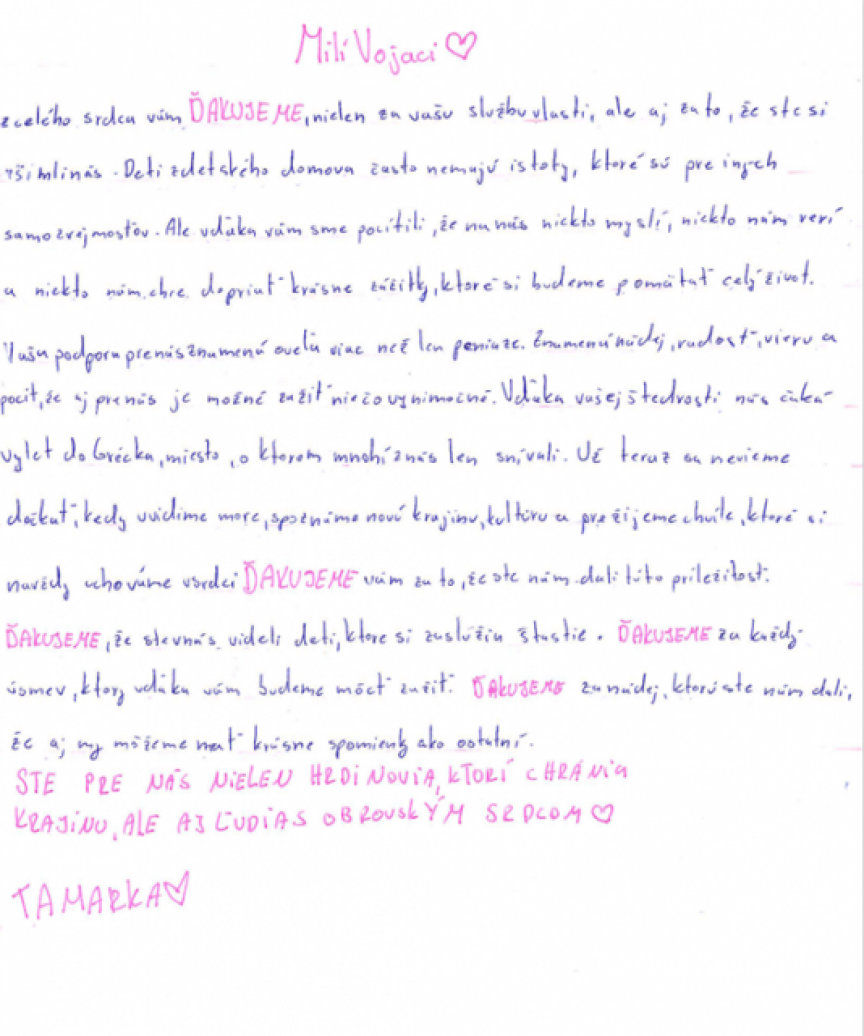 Milí Vojaci ♡
z celého srdca vám ĎAKUJEME, nielen za vašu službu vlasti, ale aj za to, že ste si
všimli nás. Deti z detského domova často nemajú istoty, ktoré sú pre iných
samozrejmosťou. Ale vďaka vám sme pocítili, že na nás niekto myslí, niekto nám verí
a niekto nám chce dopriať krásne zážitky, ktoré si budeme pamätať celý život.
Vaša podpora pre nás znamená oveľa viac než len peniaze. Znamená nádej, radosť, vieru a
pocit, že aj pre nás je možné zažiť niečo vynimočné. Vďaka vašej štedrosti nás čaká
vylet do Grécka, miesto, o ktorom mnohí z nás len snívali. Už teraz sa nevieme
dočkať, kedy uvidíme more, spoznáme novú krajinu, kultúru a prežijeme chvíle, ktoré si
navždy uchováme v srdci ĎAKUJEME vám za to, že ste nám dali túto príležitosť.
ĎAKUJEME, že ste v nás videli deti, ktore si zaslúžia šťastie. ĎAKUJEME za každý
úsmev, ktorý vďaka vám budeme môcť zažiť. ĎAKUJEME za nádej, ktorú ste nám dali,
že aj my môžeme mať krásne spomienky ako ostatní.
STE PRE NÁS NIELEN HRDINOVIA, KTORÍ CHRÁNIA
KRAJINU, ALE AJ ĽUDIA S OBROVSKÝM SRDCOM ♡
TAMARKA ♡